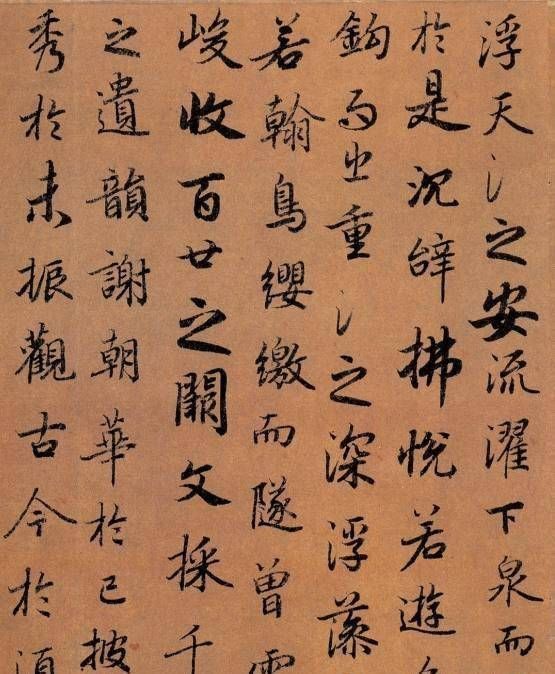 浮天氵之安流濯下泉而
於是沉辝拂悅若遊
鈎而出重氵之深浮藻
若翰鳥纓繳而隧曾雲
峻收百世之闕文採千
之遺韻謝朝華於已披
秀於未振觀古今於須